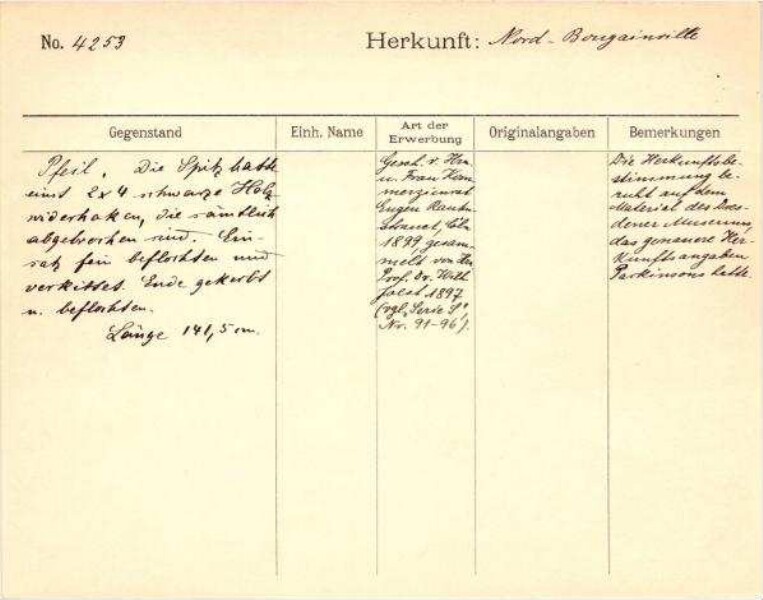 No. 4253
Herkunft: Nord-Bougainville
Gegenstand
Einh. Name
Art der
Erwerbung
Originalangaben
Bemerkungen
Pfeil. Die Spitz hatte
einst 2x4 schwarze Holz
widerhaken, die sämtlich
abgebrochen sind. Ein-
satz fein beflochten und
verkittet. Ende gekerbt
u. beflochten.
Länge 141,5 cm.
Gesch. v. Hrn.
u. Frau Kom
merzienrat
Eugen Rauten
strauch, Cöln
1899, gesam-
melt von Hn
Prof. Dr. Wilh
Joest 1897
(vgl. "Serie S",
Nr. 91-96).
Die Herkunftsbe-
stimmung be-
ruht auf dem
Material des Dres-
dener Museums,
das genauere Her-
kunftsangaben
Parkinsons hatte.